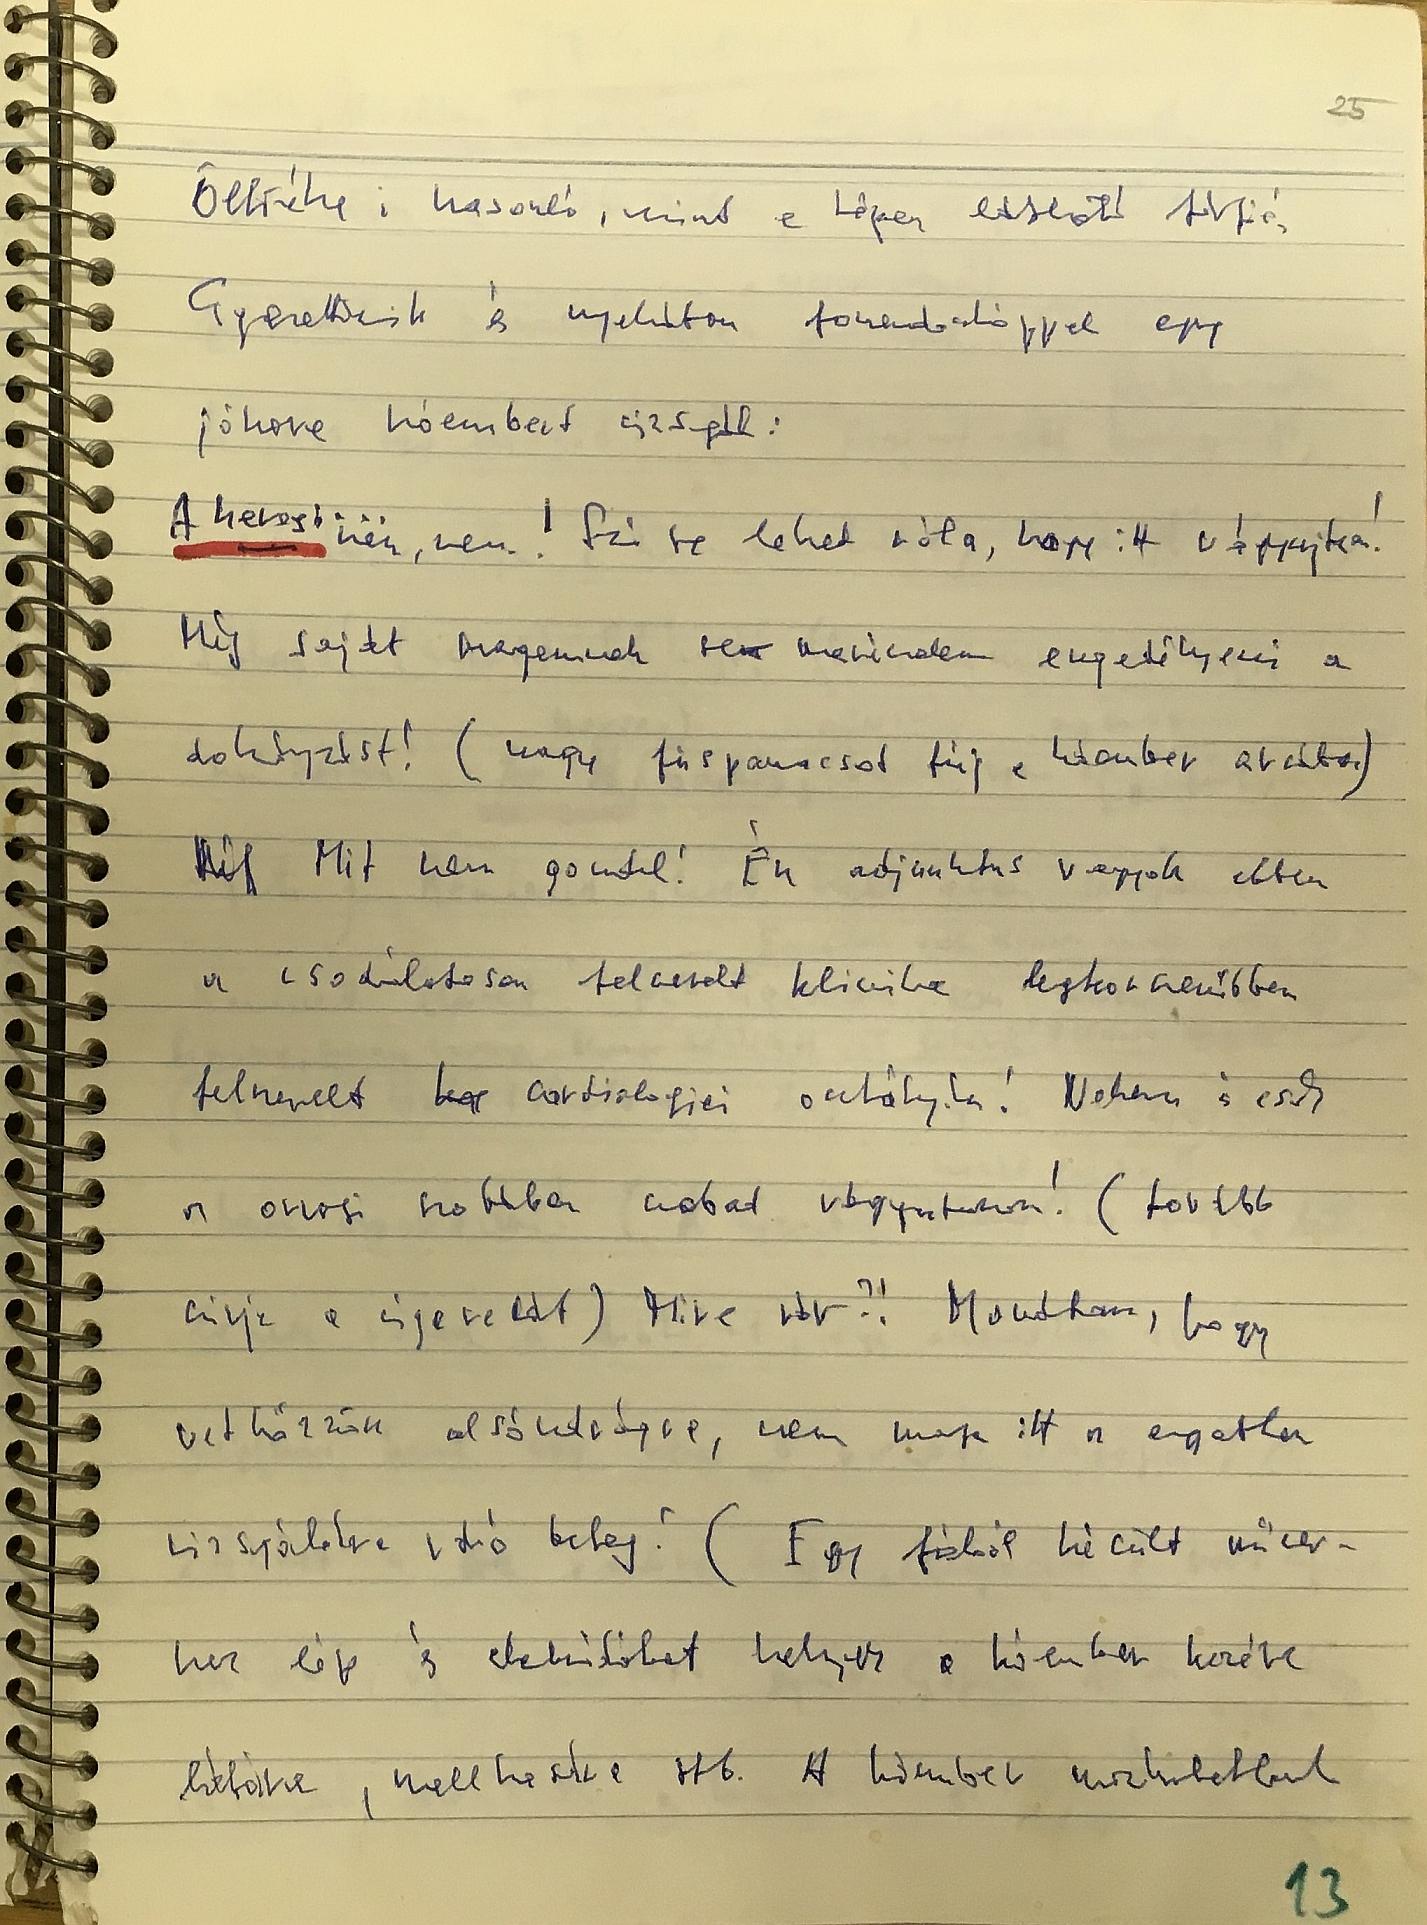 25
Öltözéke is hasonló, mint a képen látható férfié.
Gyerekkocsik és nyakában fonendoszkóppal egy
jókora hóembert vizsgál:
A herosi nem, nem! Szó se lehet róla, hogy itt rágyújtson!
Még saját magamnak se merném engedélyezni a
dohányzást! (nagy füstpamacsot fúj a hóember arcába)
Mit nem gondol! Én adjunktus vagyok ebben
a csodálatosan felszerelt klinika legkorszerűbben
felszerelt cardiologiai osztályán! Nekem is csak
az orvosi szobában szabad rágyújtanom! (tovább
szívja a cigarettát) Mire vár?! Mondtam, hogy
vetkőzzön alsónadrágra, nem maga itt az egyetlen
vizsgálatra váró beteg! (Egy fából készült műszer-
hez lép és elektródokat helyez a hóember kezére
lábára, mellkasára stb. A hóember mozdulatlanul
13